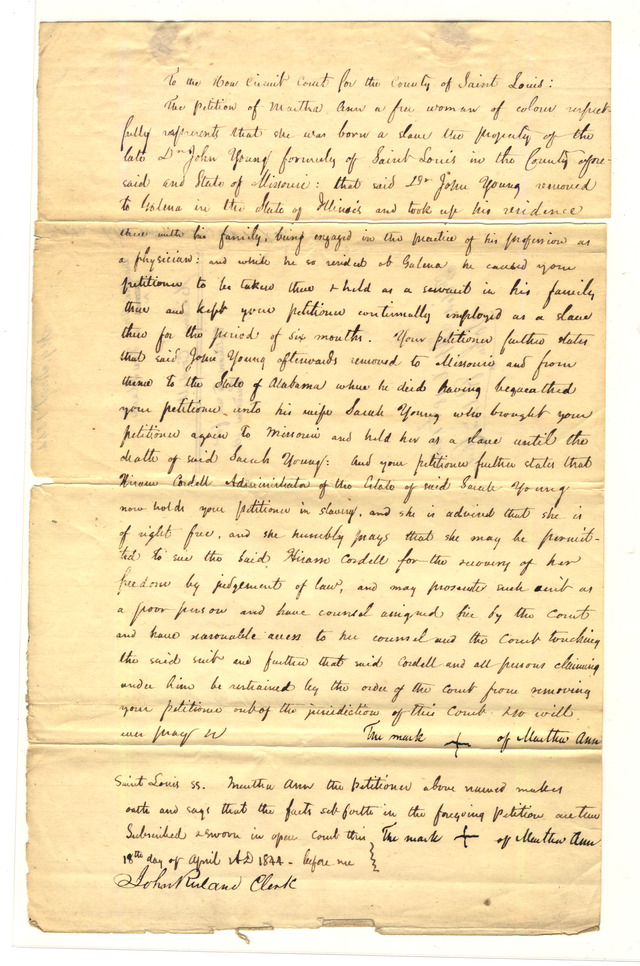 To the Hon Circuit Court for the County of Saint Louis:
The petition of Martha Ann a free woman of colour respect-
fully represents that she was born a slave the property of the
late Dr John Young formerly of Saint Louis in the County afore-
said and State of Missouri: that said Dr John Young removed
to Galena in the State of Illinois and took up his residence
there with his family, being engaged in the practice of his profession as
a physician: and while he so resided at Galena he caused your
petitioner to be taken there & held as a servant in his family
there and kept your petitioner continually employed as a slave
there for the period of six months. Your petitioner further states
that said John Young afterwards removed to Missouri and from
thence to the State of Alabama where he died having bequeathed
your petitioner unto his wife Sarah Young who brought your
petitioner again to Missouri and held her as a slave until the
death of said Sarah Young: And your petitioner further states that
Hiram Cordell Administrator of the Estate of said Sarah Young
now holds your petitioner in slavery, and she is advised that she is
of right free, and she humbly prays that she may be permit-
ted to sue the said Hiram Cordell for the recovery of her
freedom by judgement of law, and may prosecute such suit as
a poor person and have counsel assigned her by the Court
and have reasonable access to her counsel and the Court touching
the said suit and further that said Cordell and all persons claiming
under him be restrained by the order of the Court from removing
your petitioner out of the jurisdiction of this Court & so will
ever pray &c The mark + of Martha Ann
Saint Louis ss. Martha Ann the petitioner above named makes
oath and says that the facts set forth in the foregoing petition are true
Subscribed & sworn in open Court this The mark + of Martha Ann
18th day of April AD 1844 - before me
John Ruland Clerk